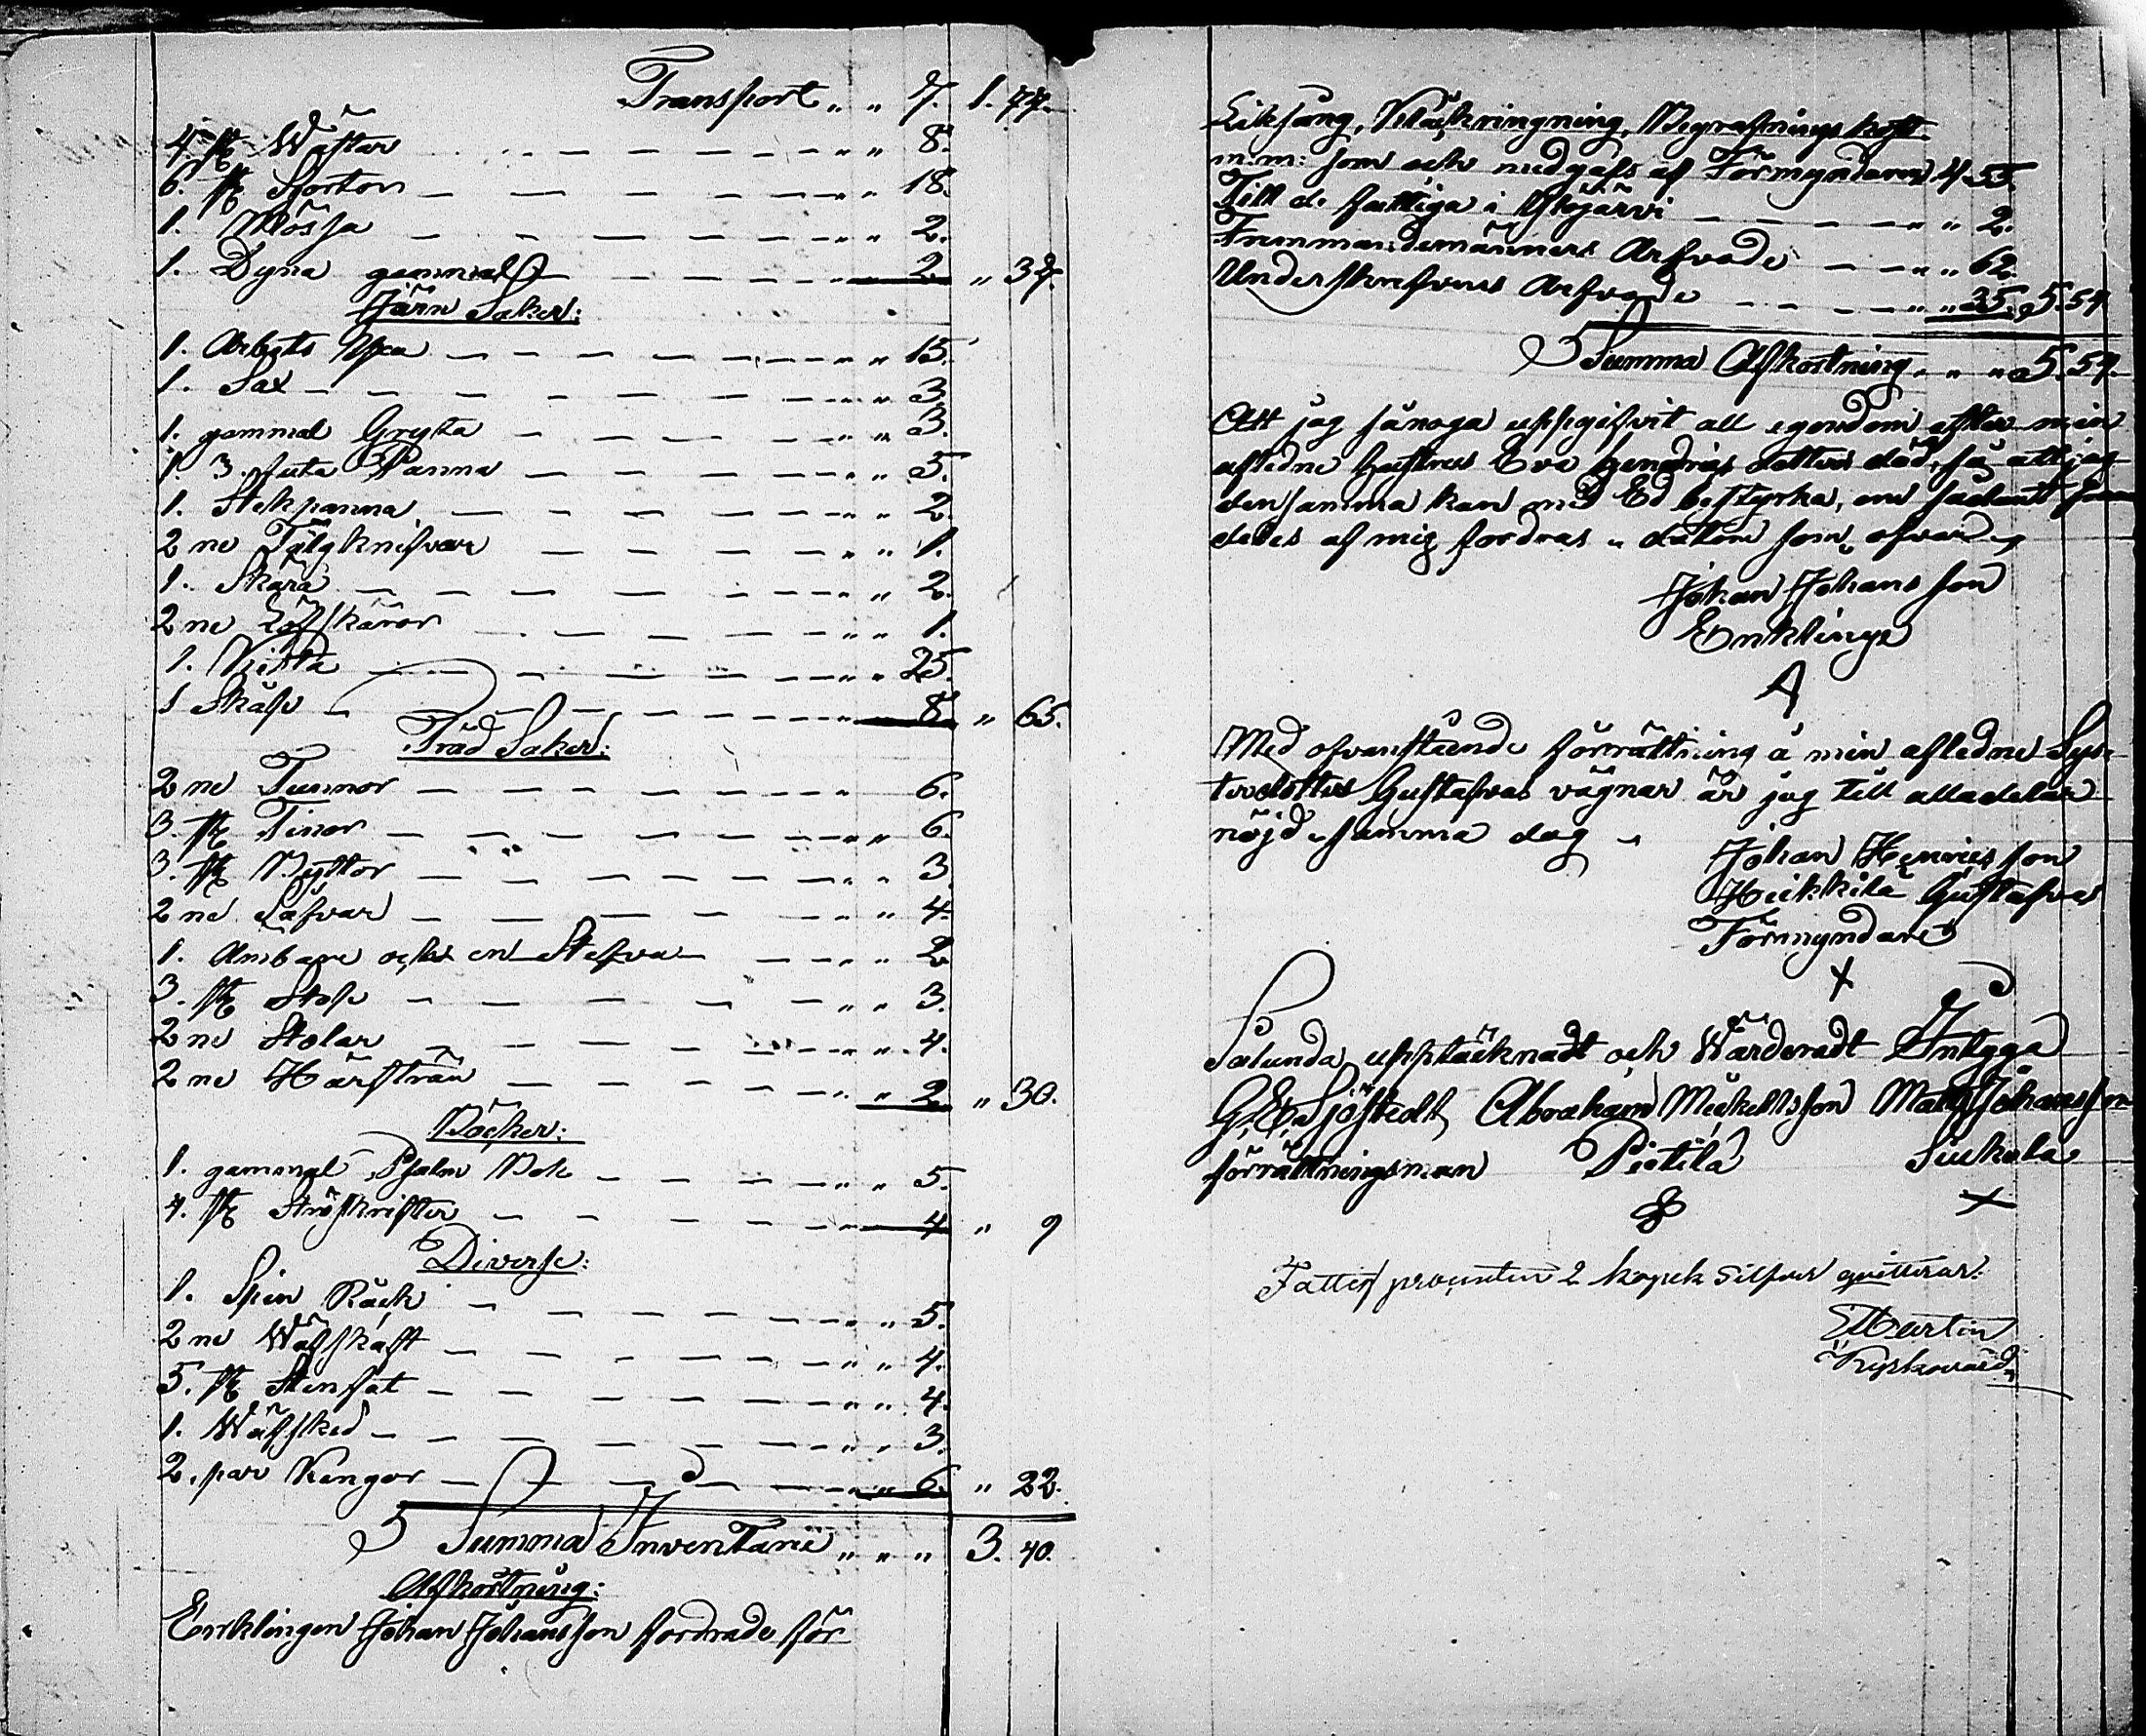 Transport „ „ 7. 1. 77.
4. st Wästar „ „ 8.
6. st Skjortor „ „ 18.
1. Mössa „ „ 2.
1. Dyna gammal „ „ 2. „ 37.
Järn Saker:
1. Arbets Yxa „ „ 15.
1. Sax „ „ 3.
1. gammal Gryta „ „ 3.
1. 3. futa Panna „ „ 5.
1. Stekpanna „ „ 2.
2ne Tälgknifvar „ „ 1.
1. Skära „ „ 2.
2ne Löfskäror „ „ 1.
1. Kista „ „ 25.
1 Skåp „ „ 8. „ 65.
Träd Saker:
2ne Tunnor „ „ 6.
3. st Tinor „ „ 6.
3. st Byttor „ „ 3.
2ne Såfvar „ „ 4.
1. Ambare och en Stefva „ „ 2.
3. st Stop „ „ 3.
2ne Stolar „ „ 4.
2ne Hårstrån „ „ 2. „ 30.
Böcker:
1. gammal Psalm Bok „ „ 5.
4. st Ströskrifter „ „ 4 „ 9
Diverse:
1. Spin Råck „ „ 5.
2ne Wäfskaft „ „ 4.
5. st Stenfat „ „ 4.
1. Wäfsked „ „ 3.
2. par Kengor „ „ 6. „ 22.
Summa Inventarie „ „ „ 3. 40.
Afkostning:
Enklingen Johan Johansson fordrade för
Liksång, Klåckringning, Begrafnings kost
m.m: som och medgafs af Förmyndaren 4.55.
Till de fattiga i Ylöjärvi „ „ 2.
Fremmandemänners Arfvode „ „ 62.
Underskrefvens Arfvode „ „ 35. 5.54
Summa Afkostning „ „ „ 5. 54.
Att jag så noga uppgifvit all egendom efter min
afledne hustrus Eva Hendrics dotters död, så att jag
densamma kan med Ed bestyrka, om sådant fram
deles af mig fordras „ datum som ofvan
Johan Johansson
Enklinge
A
Med ofvanstående förrättning å min afledne Sys-
terdotter Gustafvas vägnar är jag till alladelar
nöjd „ samma dag „
Johan Henricsson
Heikkilä Gustafvas
Förmyndare
X
Sålunda upptäcknadt och Wärderadt Intyga
G. E. Sjöstedt Abraham Mickelsson Matts Johansson
förrättningsman Pietilä Siukola
X
Fattig procenten 2 kopek Silfver qvitterar:
Martin
Kyrkovärd